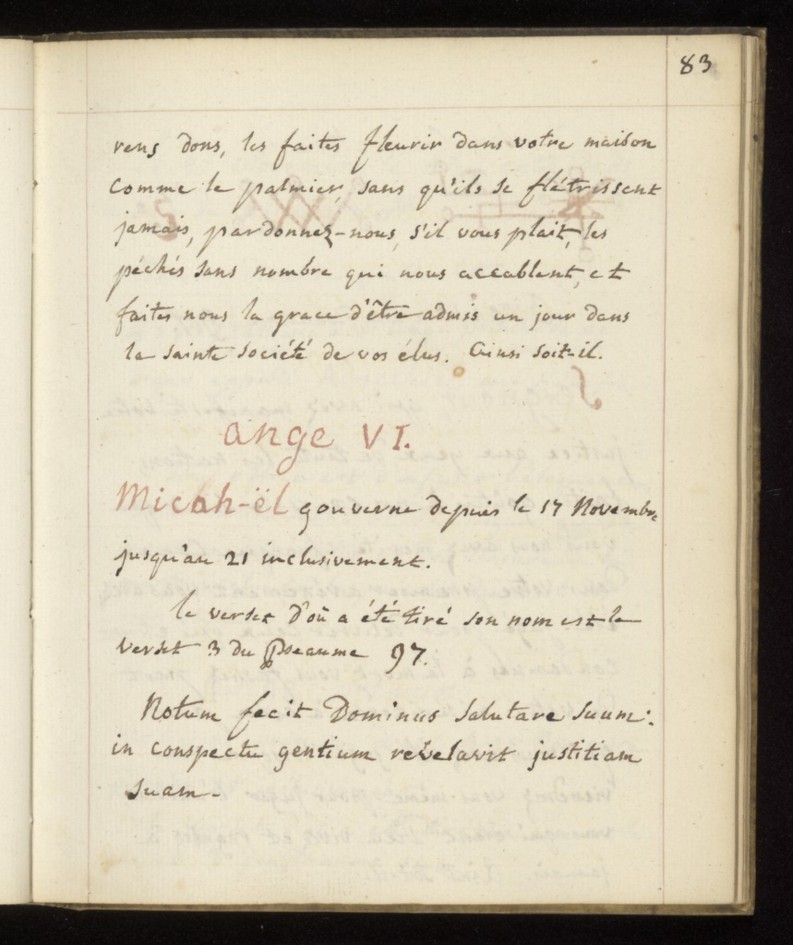 83
rens dons, les faites fleurir dans votre maison
comme le palmier, sans qu'ils se flétrissent
jamais, pardonnez-nous, s'il vous plait, les
péchés sans nombre qui nous accablent, et
faites nous la grace d'être admis un jour dans
la sainte société de vos élus. Ainsi soit-il.
ange VI.
Micah-ël gouverne depuis le 17 Novembre
jusqu'au 21 inclusivement.
le verset d'où a été tiré son nom est le
verset 3 du Pseaume 97.
Notum fecit Dominus salutare suum:
in conspectu gentium revelavit justitiam
suam.